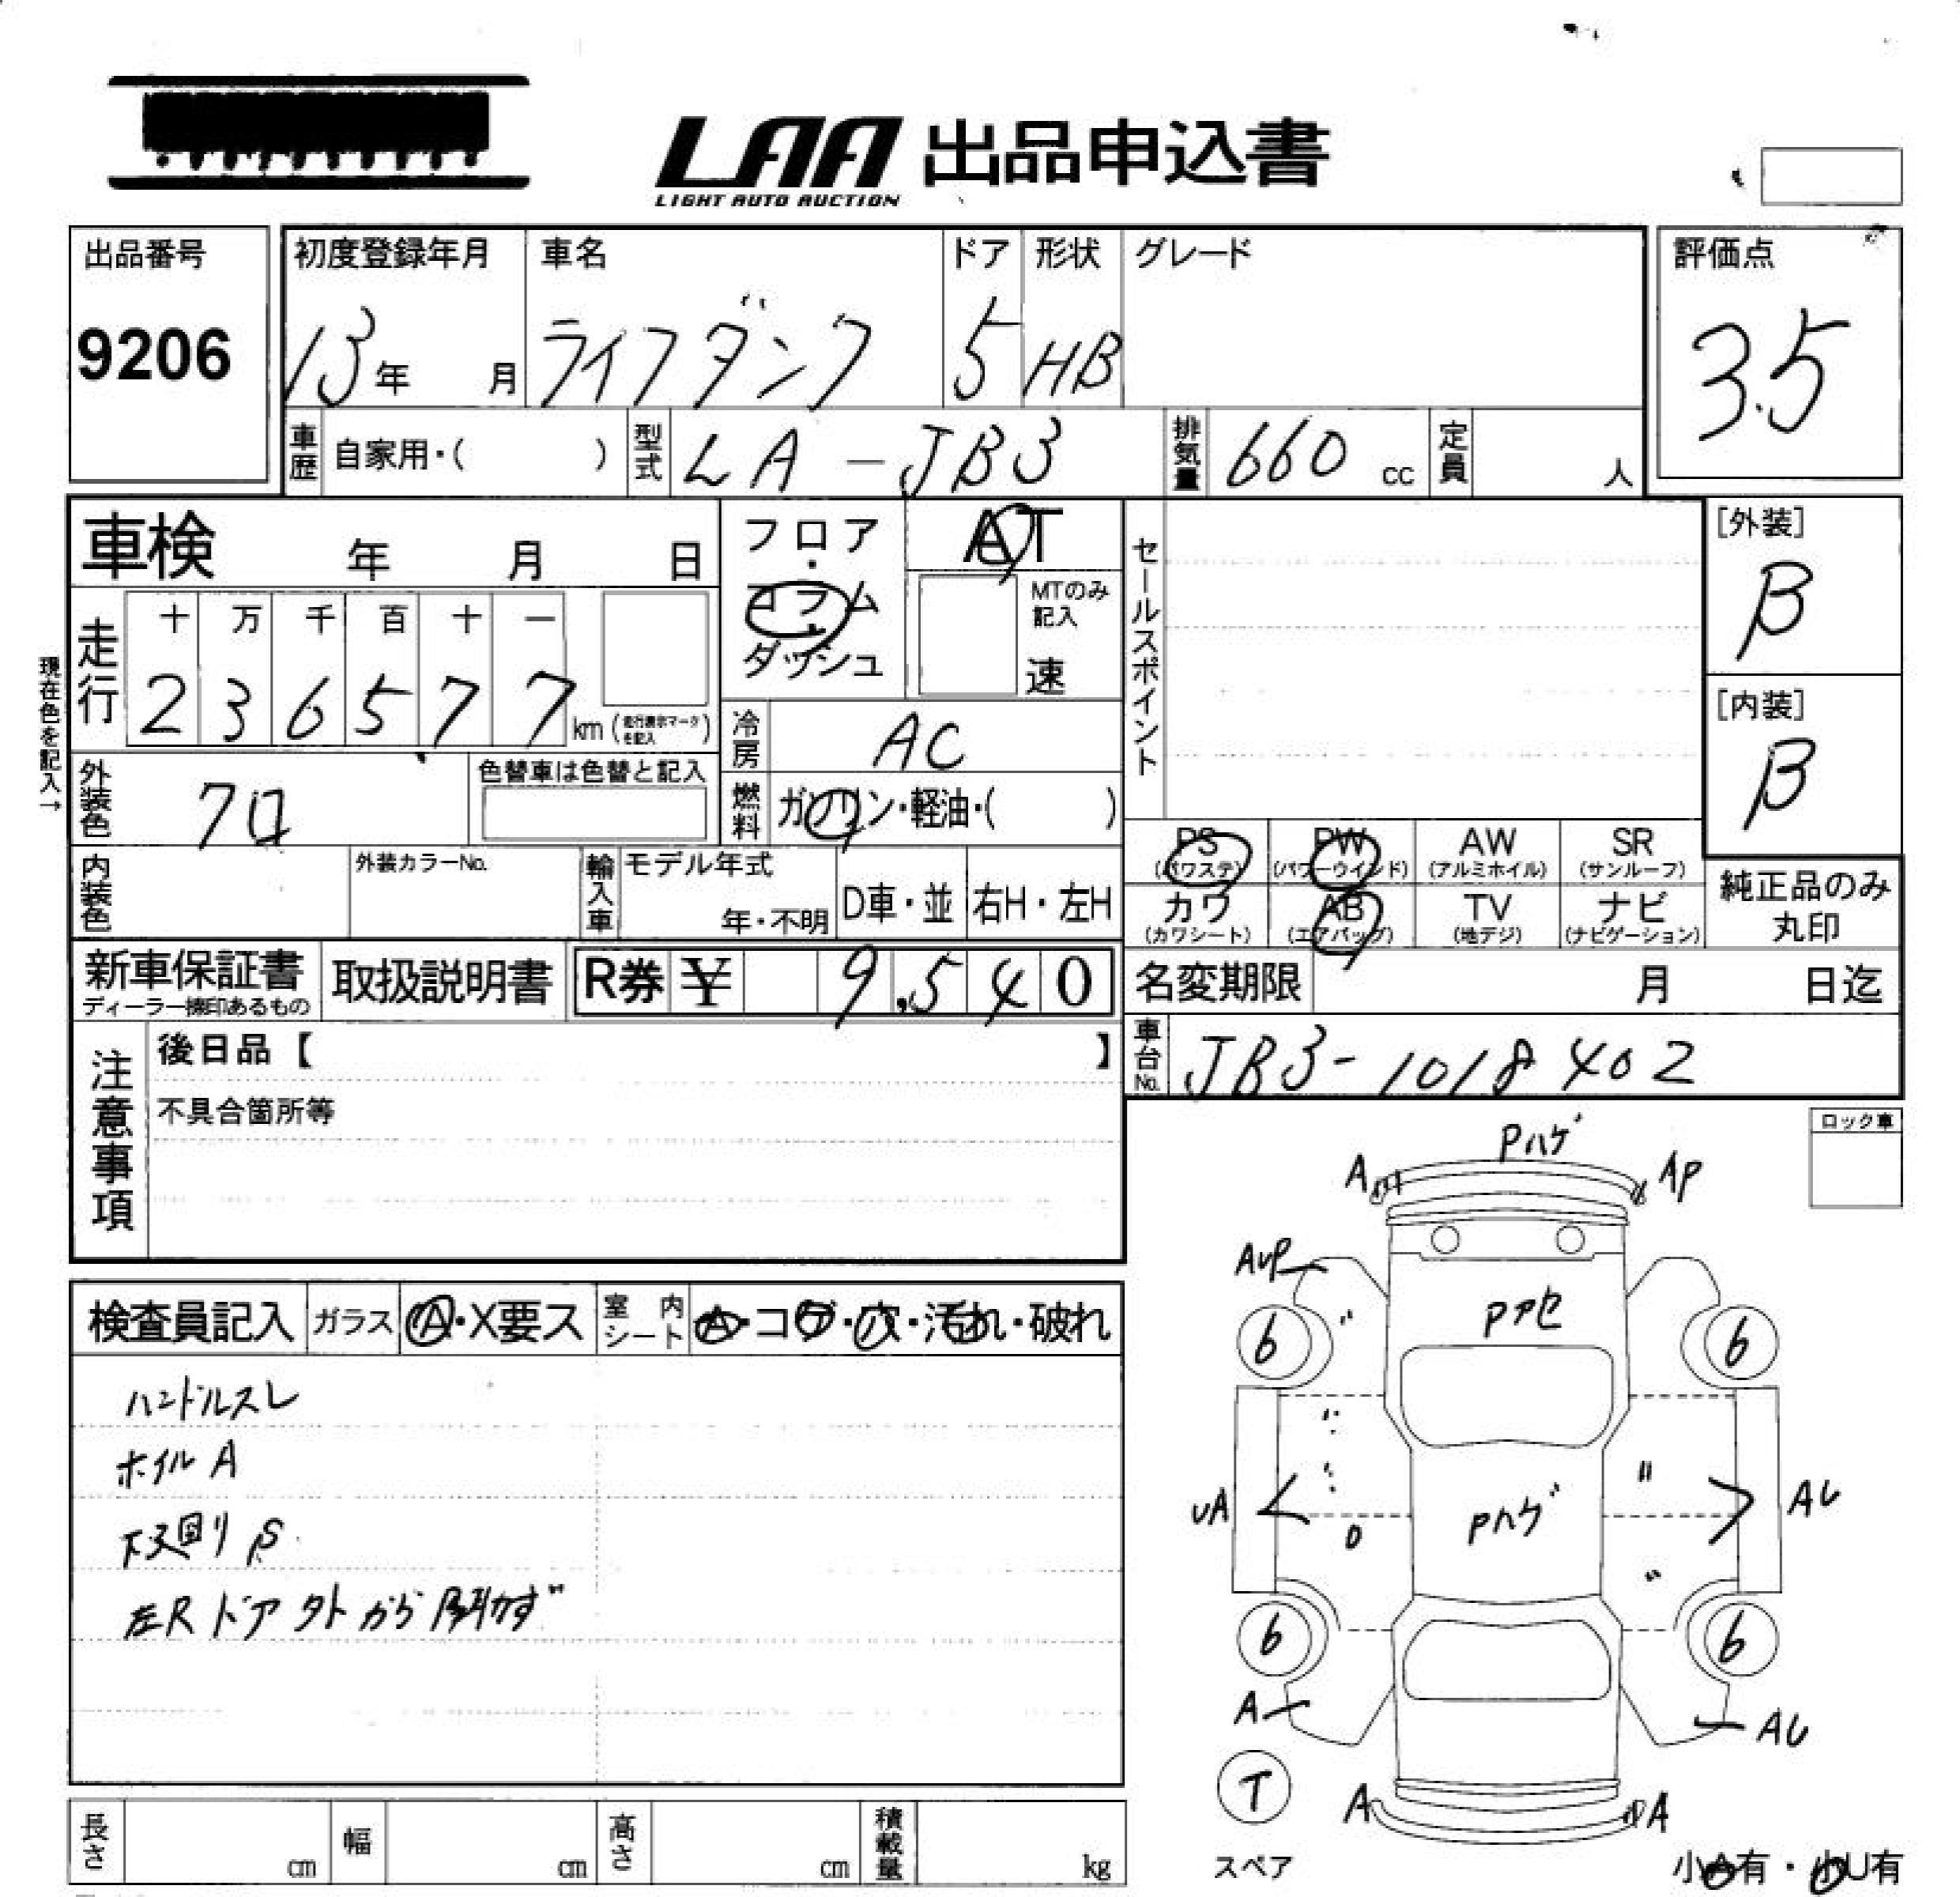 LAA 出品申込書
LIGHT AUTO AUCTION
出品番号
9206
初度登録年月
13年 月
車名
ライフダンク
ドア
5
形状
HB
グレード
評価点
3.5
車歴 自家用・( )
型式 LA-JB3
排気量 660 cc
定員 人
車検 年 月 日
フロア・コラム・ダッシュ
AT
MTのみ記入
速
セールスポイント
[外装]
B
[内装]
B
現在色を記入→
走行
十 万 千 百 十 一
2 3 6 5 7 7 km (走行表示マークを記入)
冷房 AC
外装色
色替車は色替と記入
燃料 ガソリン・軽油・( )
内装色
外装カラーNo.
輸入車 モデル年式
年・不明
D車・並
右H・左H
PS (パワステ)
PW (パワーウインド)
AW (アルミホイル)
SR (サンルーフ)
カワ (カワシート)
AB (エアバッグ)
TV (地デジ)
ナビ (ナビゲーション)
純正品のみ
丸印
新車保証書
ディーラー捺印あるもの
取扱説明書
R券 ¥ 9,540
名変期限 月 日迄
車台No. JB3-1018402
注意事項
後日品【 】
不具合箇所等
ロック車
検査員記入 ガラス A・X要ス 室内シート A・コゲ・穴・汚れ・破れ
ハンドルスレ
ホイルA
下廻りS
左Rドア外から開かず
Pハゲ
A
AP
AUP
Pアセ
〃
6
6
〃
〃
〃
UA
AU
Pハゲ
〃
6
6
A
AU
T
A
A
スペア
小A有・小U有
長さ cm
幅 cm
高さ cm
積載量 kg